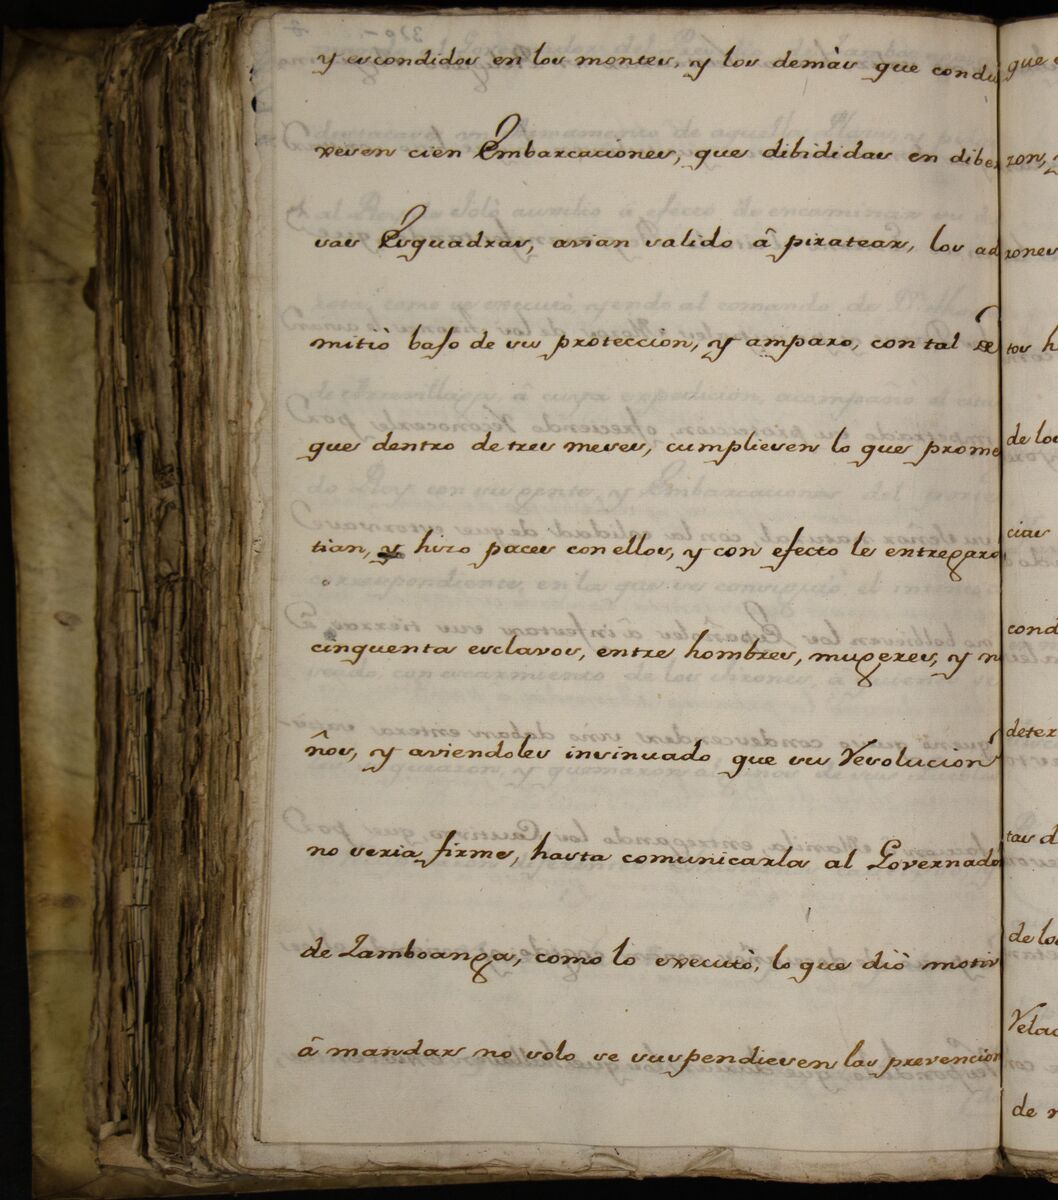 y escondidos en los montes, y los demàs que condu
xesen cien Embarcaciones, que dibididas en diber
sas Esquadras, avian salido â piratear, los ad
mitiò bajo de su proteccion, y amparo, con tal de
que dentro de tres meses, cumpliesen lo que prome
tian, y hizo paces con ellos, y con efecto le entregaro
cinquenta esclavos, entre hombres, mugeres, y ni
ños, y aviendoles insinuado que su resolucion
no seria firme, hasta comunicarla al Governado
de Zamboanga, como lo executò, lo que diò motiv
â mandar no solo se suspendiesen las prevencion
que
zon,
zones
tos h
de los
cias
cond
deter
tas d
de los
Relac
de